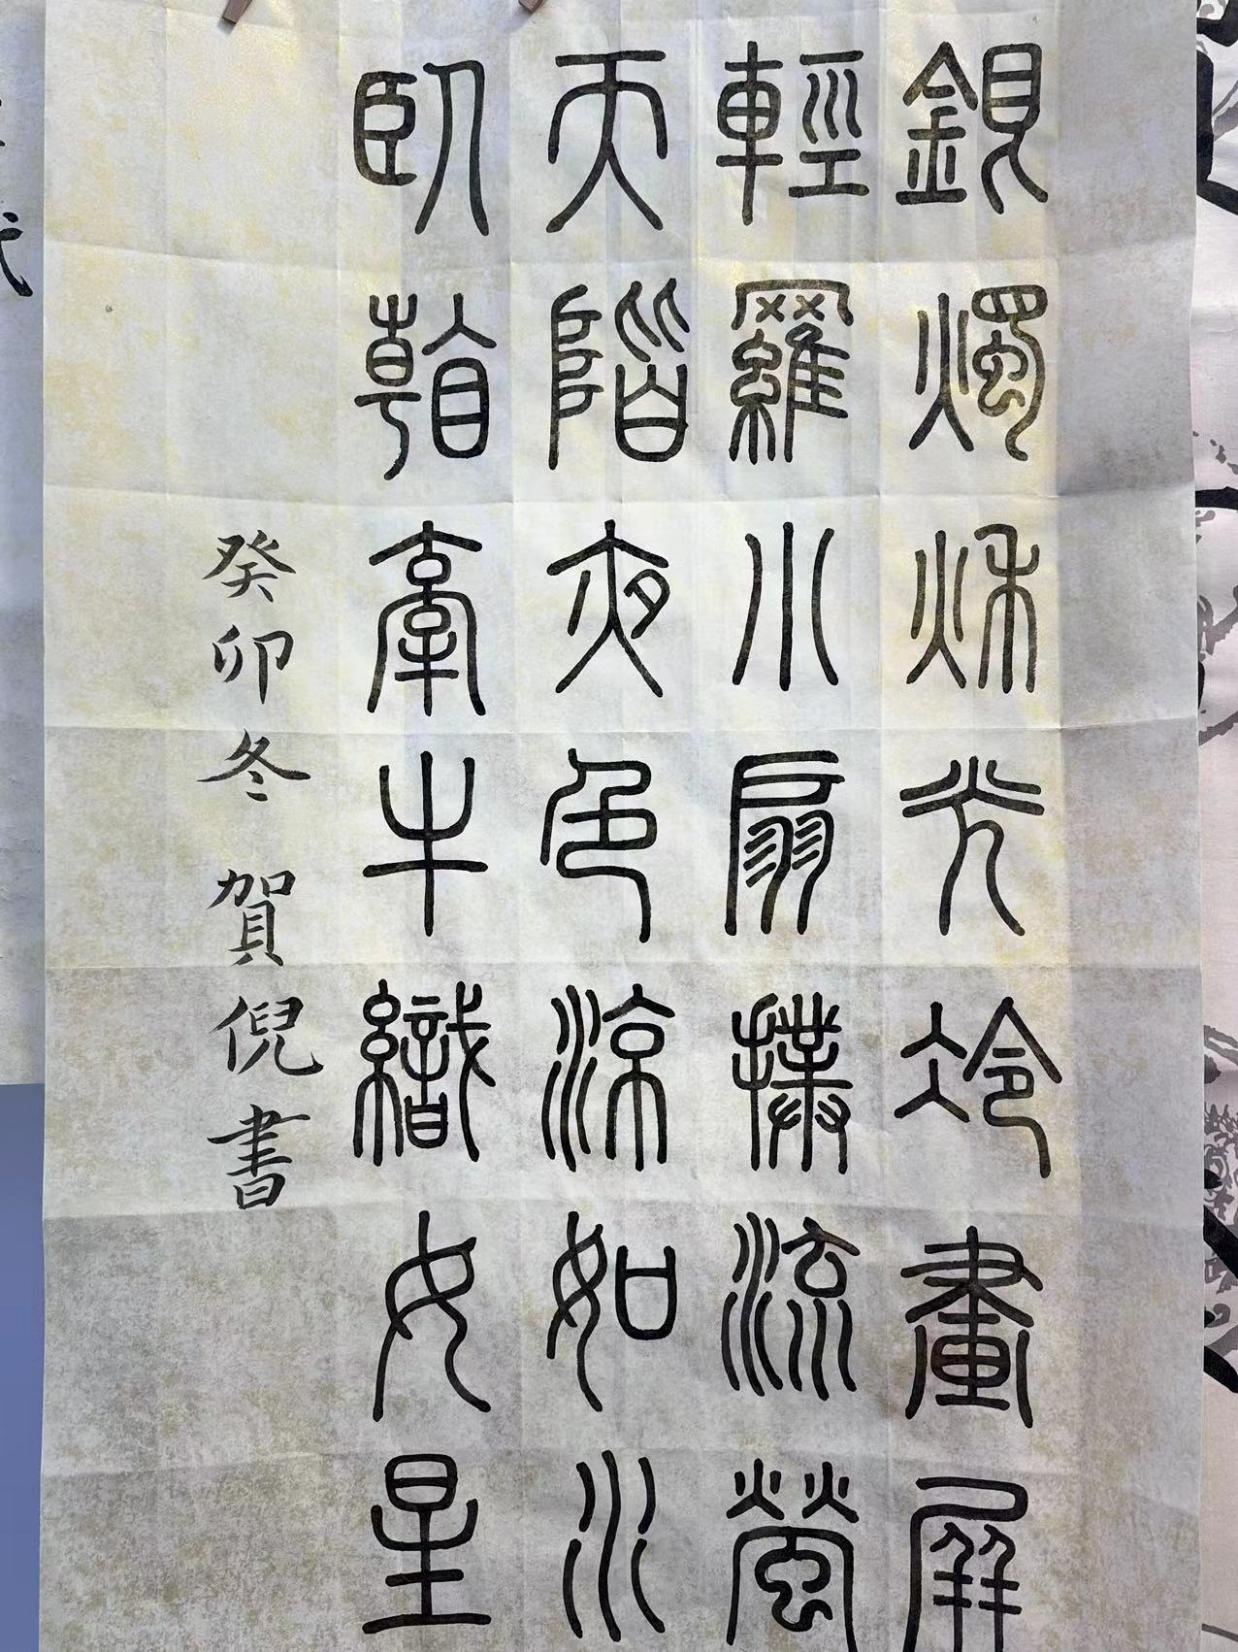 銀燭秋光冷畫屏
輕羅小扇撲流螢
天階夜色涼如水
臥看牽牛織女星
癸卯冬賀倪書